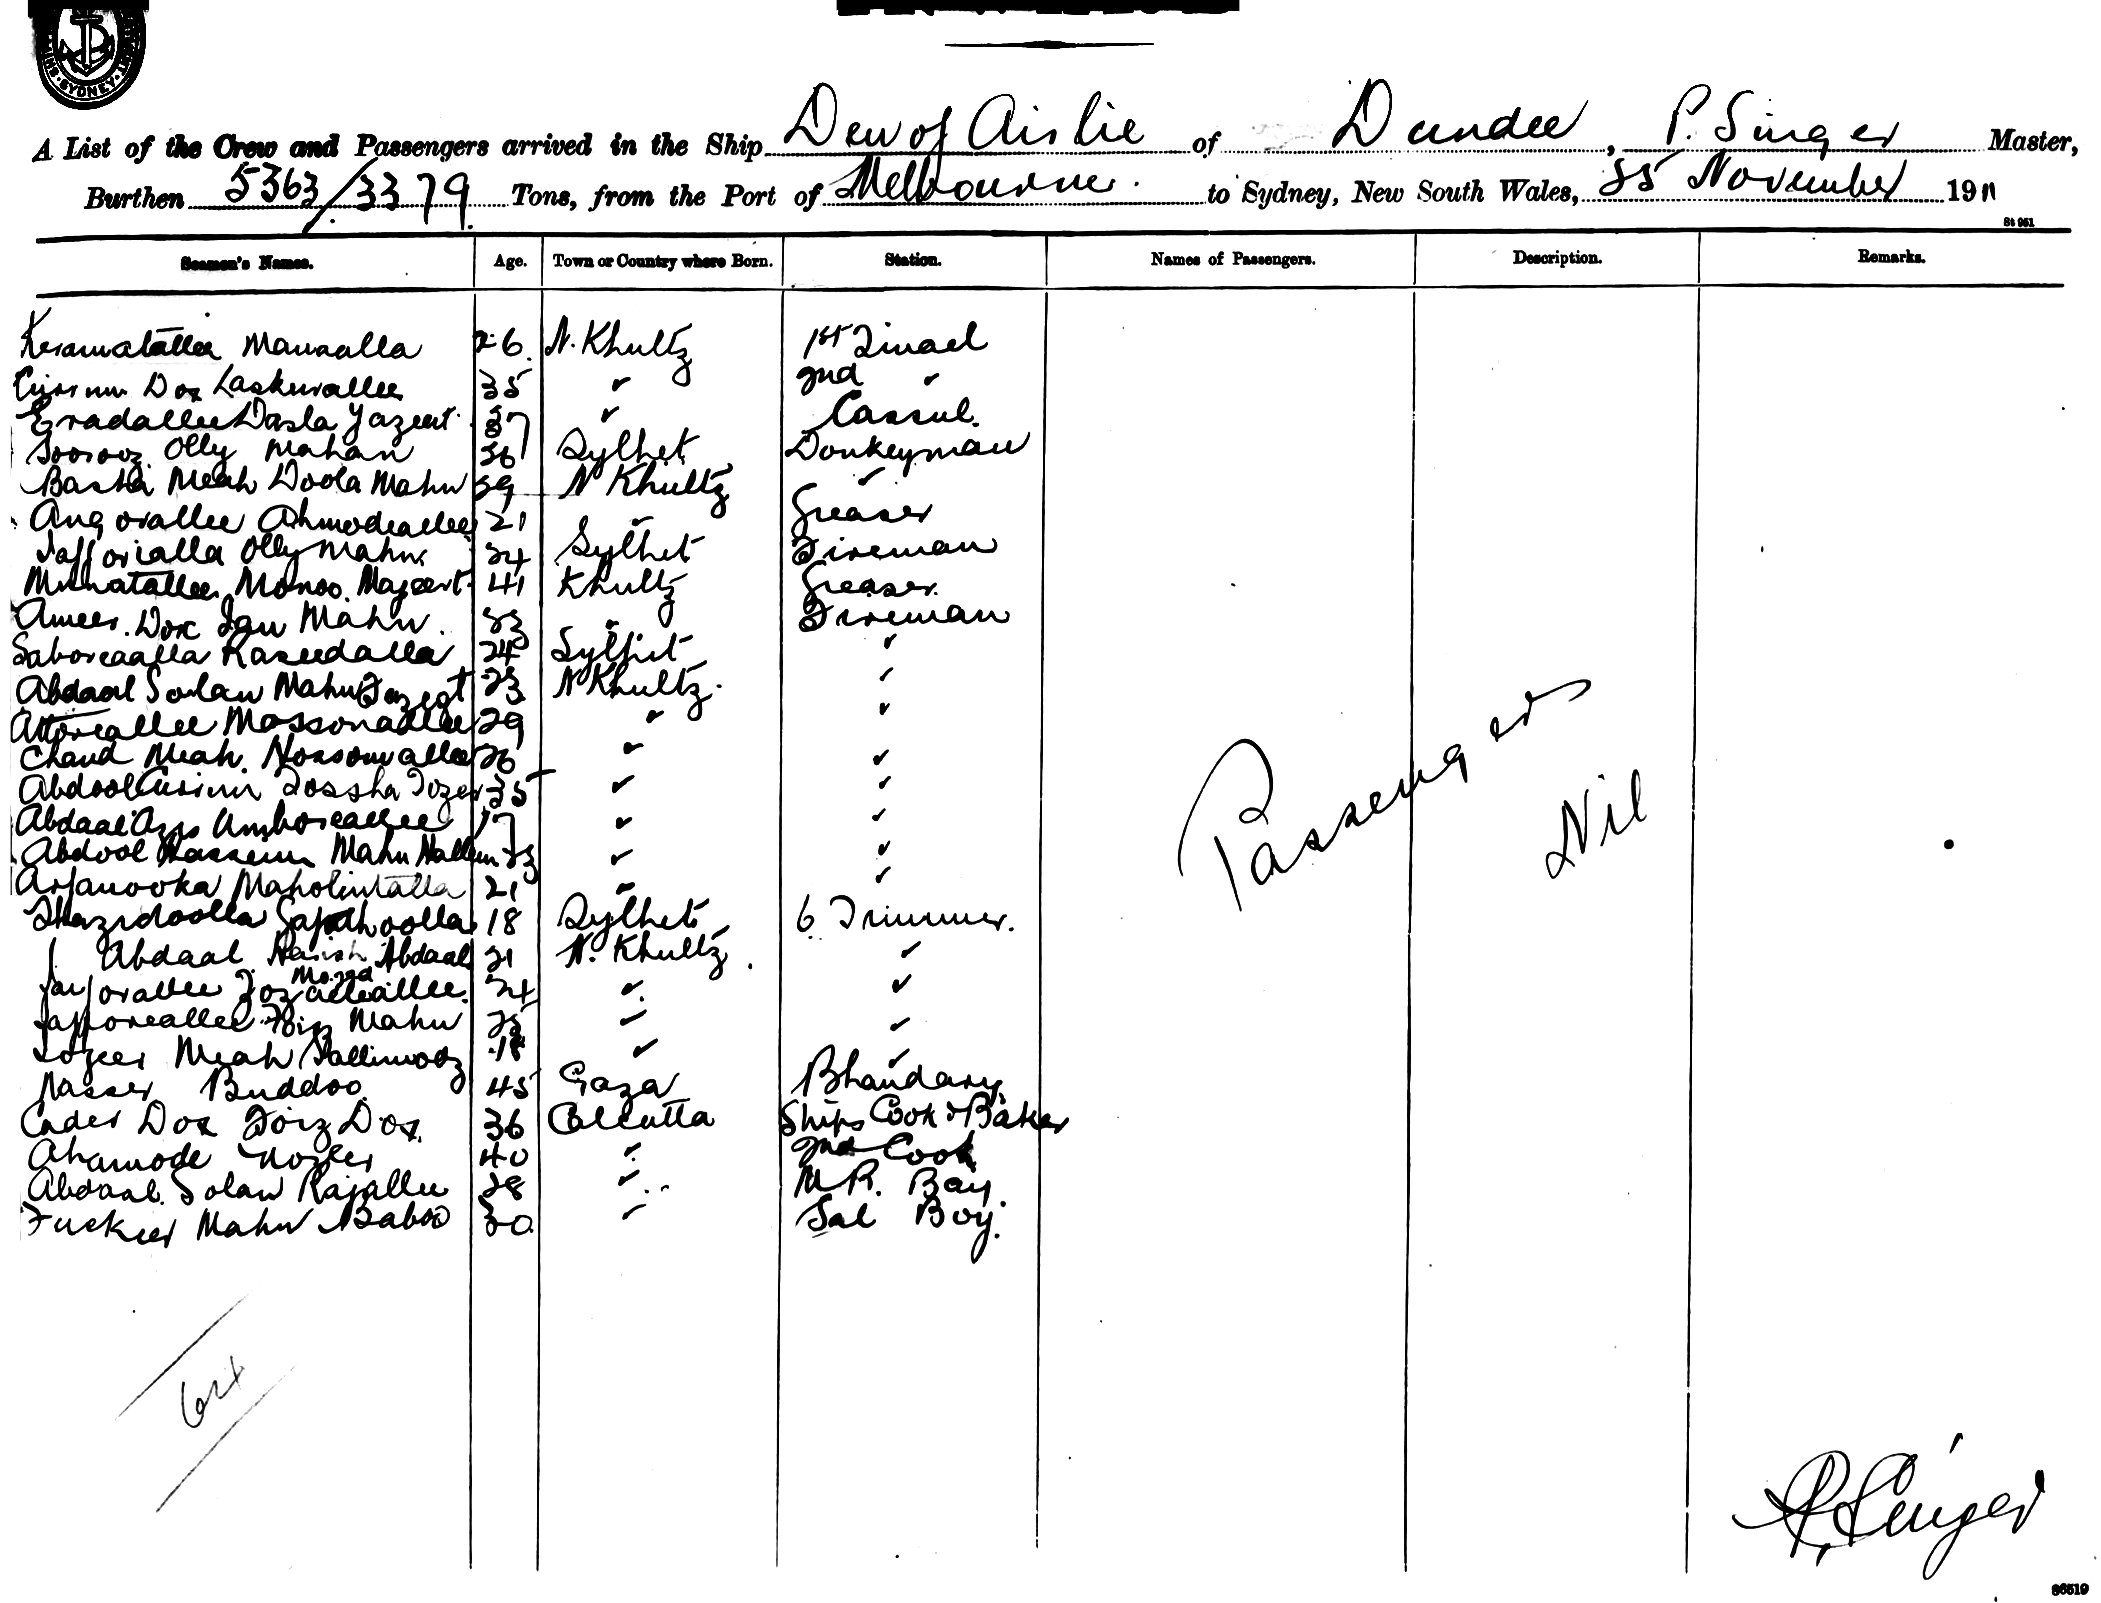 SYDNEY
A List of the Crew and Passengers arrived in the Ship Den of Airlie of Dundee, P. Singer Master,
Burthen 5363/3379 Tons, from the Port of Melbourne to Sydney, New South Wales, 25 November 1911
St 951
Seamen's Names. Age. Town or Country where Born. Station. Names of Passengers. Description. Remarks.
Keramatallee Manaalla 26 N. Khultz 1st Tindal
Dox Laskurallee 35 ✓ 2nd ✓
Eradallee Dasla Jazeet 37 ✓ Cassul.
Olly Mahan 36 Sylhet Donkeyman
Basha Meah Doola Mahn 29 N Khultz ✓
Angorallee Ahmodeallee 21 ✓ Greaser
Jafforialla Olly Mahn 24 Sylhet Fireman
Munatallee Monoo Majeert 41 Khultz Greaser.
Ameer Dox Jan Mahn 33 ✓ Fireman
Saboreaalla Raseedalla 24 Sylhet ✓
Abdaal Solan Mahn 23 N Khultz. ✓
Attoreallee Massonadlee 29 ✓ ✓
Chand Meah. Nossomallee 26 ✓ ✓
Abdool Tossha 35 ✓ ✓
Abdaal Azis Amboreallee 17 ✓ ✓
Abdool Hasseim Mahn 23 ✓ ✓
Arfanooka 21 ✓ ✓
18 Sylhet 6 Trimmer.
Abdaal Abdaal 21 N. Khultz. ✓
24 ✓ ✓
Jafforeallee Foiz Mahn 25 ✓ ✓
Meah 18 ✓ ✓
Nasser Buddoo 45 Gaza Bhandary
Cader Dox Foiz Dox. 36 Calcutta Ships Cook & Baker
Ahamode 40 ✓ 2nd Cook
Abdaal Solan Rajallee 28 ✓ M R. Bay.
Fuckeer Mahn Baboo 30 ✓ Sal Boy.
Passengers
Nil
P. Singer
86519